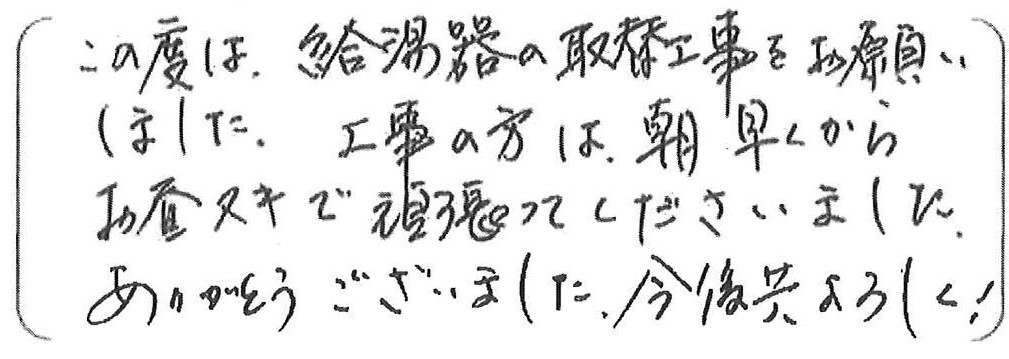 この度は、給湯器の取替工事をお願い
しました。 工事の方は、朝早くから
お昼スギで頑張ってくださいました。
ありがとうございました。今後共よろしく!